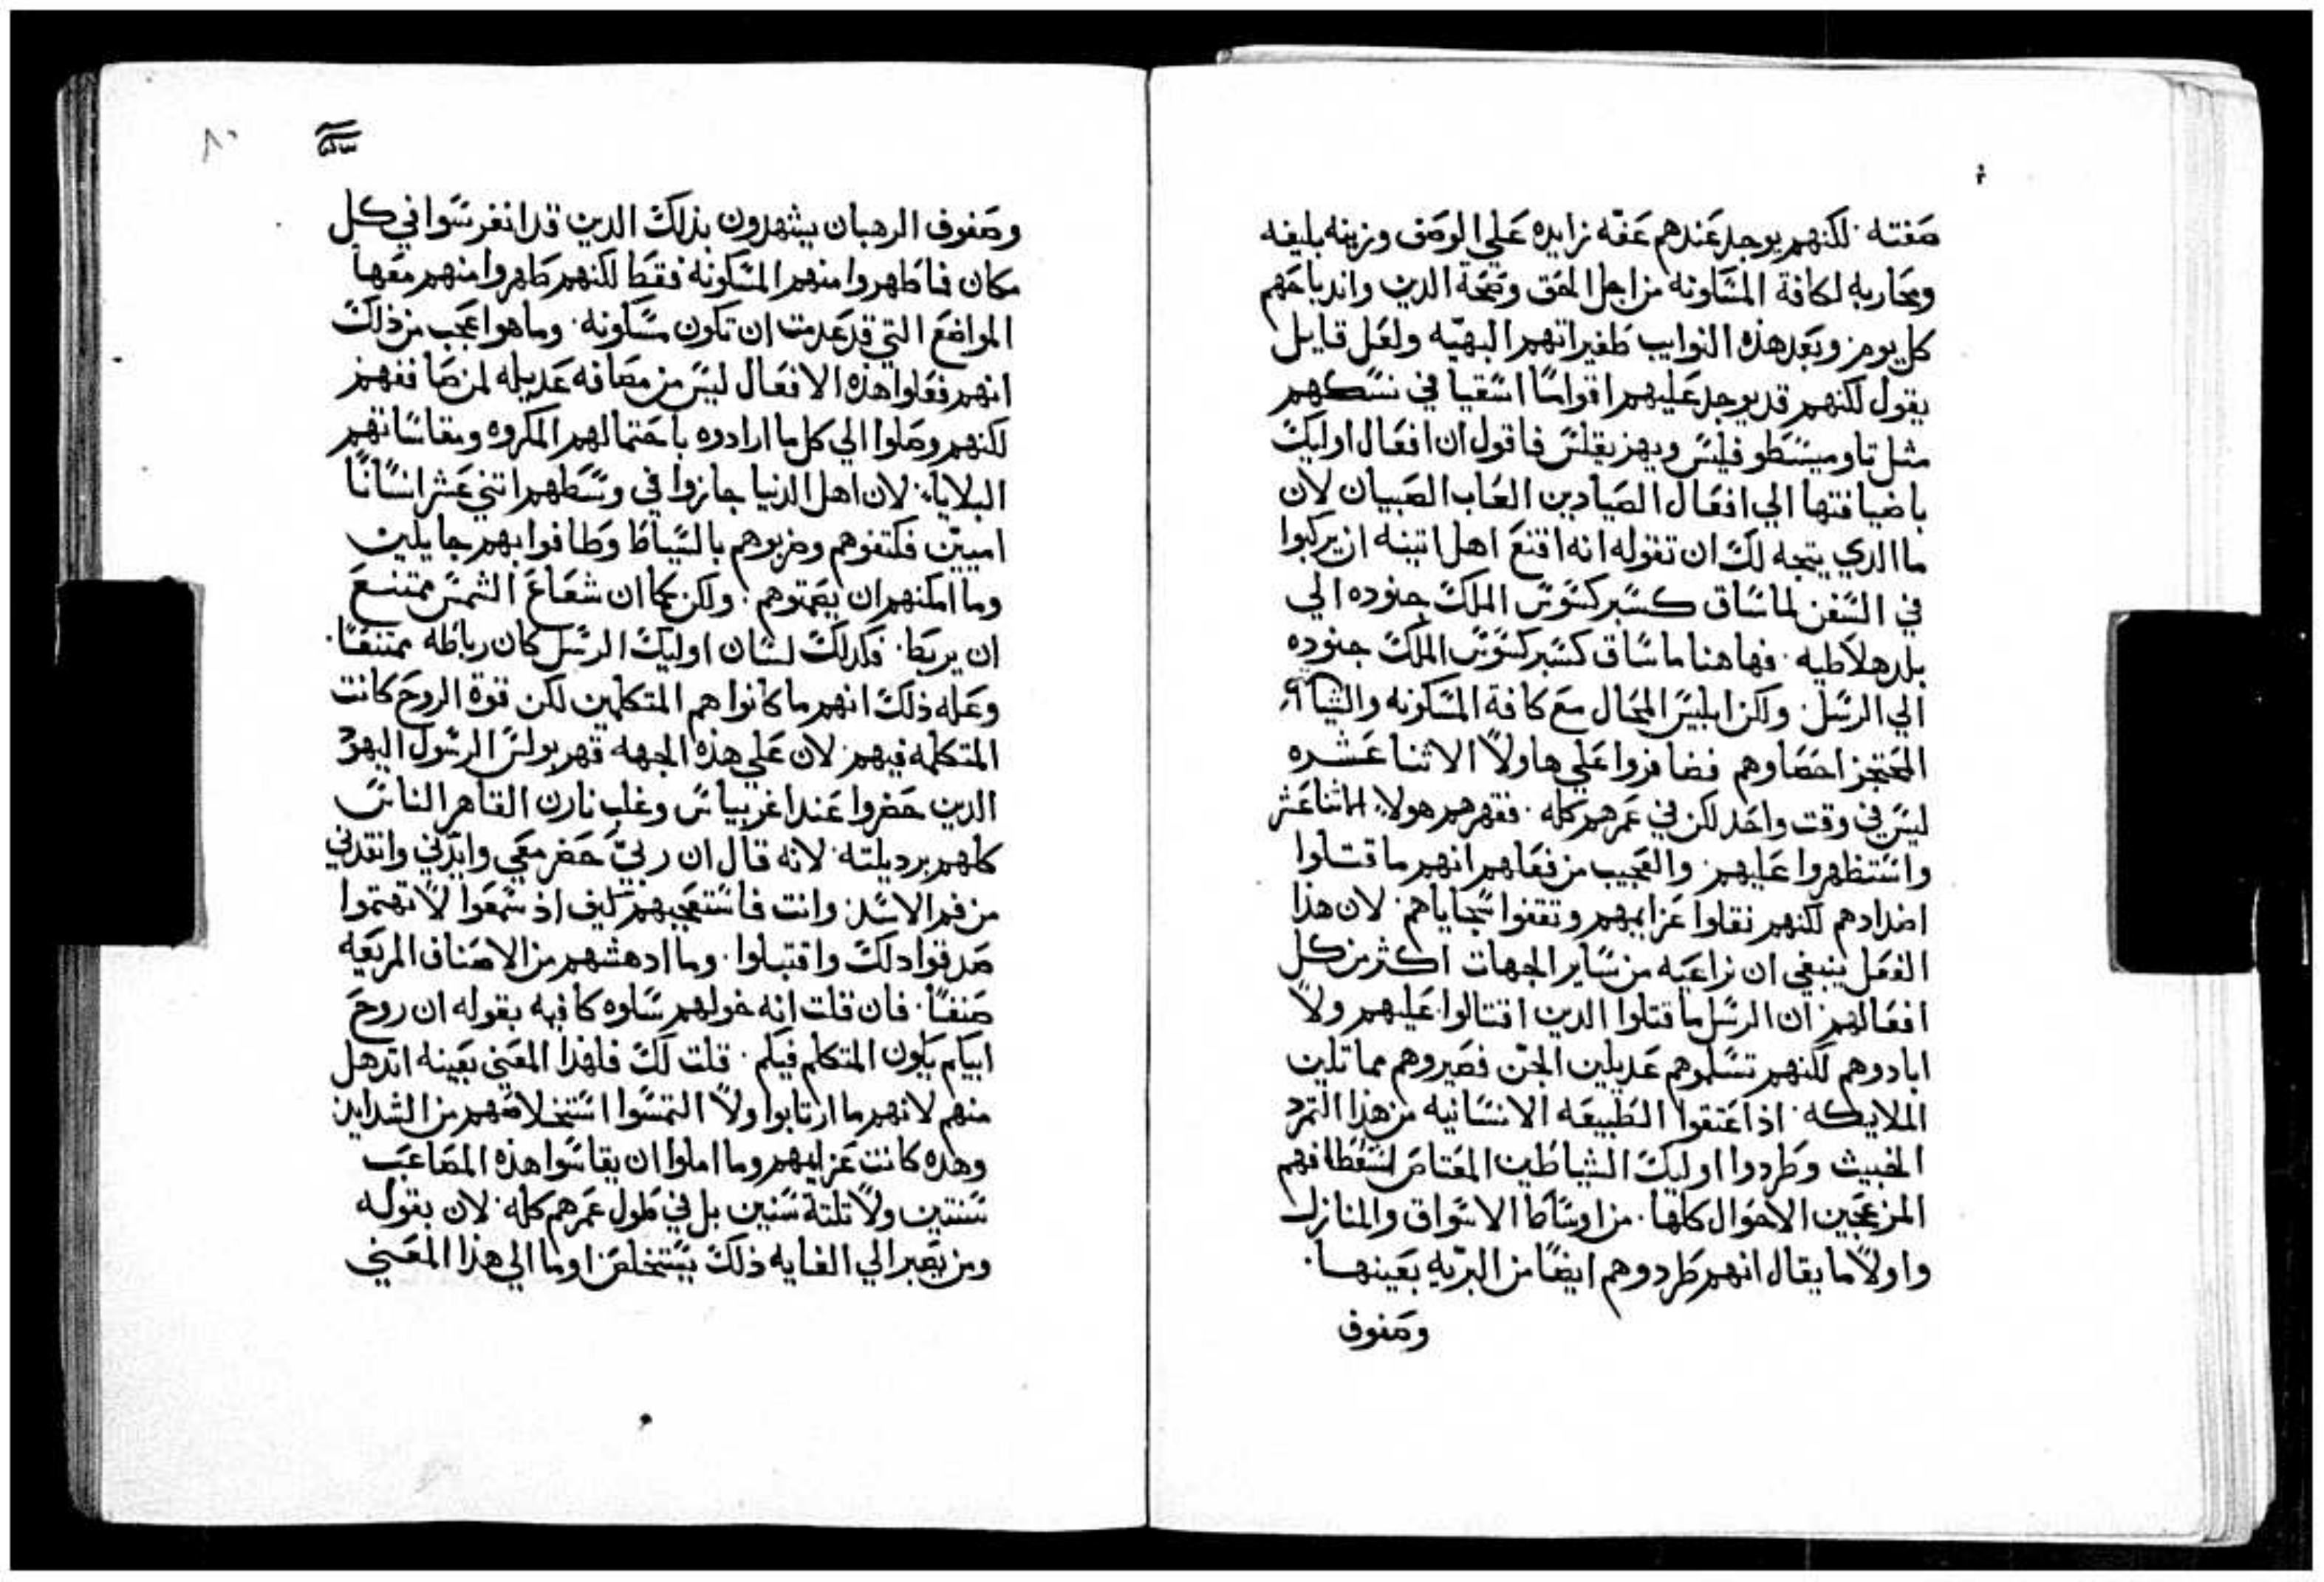 صفته. لكنهم يوجد عندهم عفّه زايده علي الوصف وزينه بليغه
ومحاربه لكافة المسكونه من اجل الحق وصحة الدين واندباحهم
كل يوم. وبعد هذه النوايب ظفيراتهم البهيّه ولعل قايل
يقول لكنهم قد يوجد عليهم اقواسًا اشقيا في نسكهم
مثل تاوميسطوفليس وبهريقلس فاقول ان افعال اوليك
باضيافتها الي افعال الصيادين العاب الصبيان لان
ما الدي يتجه لك ان تقوله انه اقنع اهل اتينه ان يركبوا
في السفن لما ساق كسبركسوس الملك جنوده الي
بلد هلاطيه. فهاهنا ما ساق كسبركسوس الملك جنوده
الي الرسل. ولكن ابليس المحال مع كافة المسكونه والشياطين
المحتجز احصاوهم فضافروا علي هاولاً الاثنا عشره
ليس في وقت واحد لكن في عمرهم كله. فقهرهم هولاء الاثنا عشر
واستظهروا عليهم. والعجيب من فعلهم انهم ما قتلوا
اضدادهم لكنهم نقلوا عزايمهم وتقفوا سجاياهم. لان هذا
الفعل ينبغي ان نراعيه من ساير الجهات اكثر من كل
افعالهم. ان الرسل ما قتلوا الدين اقتالوا عليهم ولاً
ابادوهم لكنهم تسلموهم عديلين الجن فصيروهم مماتلين
الملايكه. اذ اعتقوا الطبيعه الانسانيه من هذا التمرد
الخبيث وطردوا اوليك الشياطين المعتاص لسغطافهم
المزعجين الاحوال كلها. من اوساط الاسواق والمنازل
واولاً ما يقال انهم طردوهم ايضًا من البرّيه بعينها.
وصفوف
٨٠
وصفوف الرهبان يشهدون بذلك الدين قد انغرسوا في كل
مكان فما طهروا منهم المسكونه فقط لكنهم طهروا منهم معها
المواضع التي قد عدمت ان تكون مسكونه. وما هو اعجب من ذلك
انهم فعلوا هذه الافعال ليس من مصافه عديله لمن صاففهم
لكنهم وصلوا الي كل ما ارادوه باحتمالهم المكروه ومقاساتهم
البلايا. لان اهل الدنيا جازوا في وسطهم اتني عشر انسانًا
اميين فكتفوهم وضربوهم بالسياط وطافوا بهم جايلين
وما امكنهم ان يصمتوهم. ولكن كما ان شعاع الشمس ممتنع
ان يربط. فكدلك لسان اوليك الرسل كان رباطه ممتنعًا.
وعله ذلك انهم ما كانوا هم المتكلمين لكن قوة الروح كانت
المتكلمه فيهم. لان علي هذه الجهه قهر بولس الرسول اليهود
الدين حضروا عند اغريباس وغلب نارن القاهر الناس
كلهم برديلته. لانه قال ان ربيّ حضر معي وايدّني وانقدني
من فم الاسد. وانت فاستعجبهم كيف اذ سمعوا لا تهتموا
صدقوا دلك واقتبلوا. وما ادهشهم من الاصناف المريعه
صنفًا. فان قلت انه خولهم سلوه كافيه بقوله ان روح
ابيكم يكون المتكلم فيكم. قلت لك فلهدا المعني بعينه اندهل
منهم لانهم ما ارتابوا ولاً التمسوا استخلاصهم من الشدايد
وهده كانت عزايمهم وما املوا ان يقاسوا هذه المصاعب
سنتين ولاً تلتة سنين بل في طول عمرهم كله. لان بقوله
ومن يصبر الي الغايه ذلك يستخلص اوما الي هذا المعني